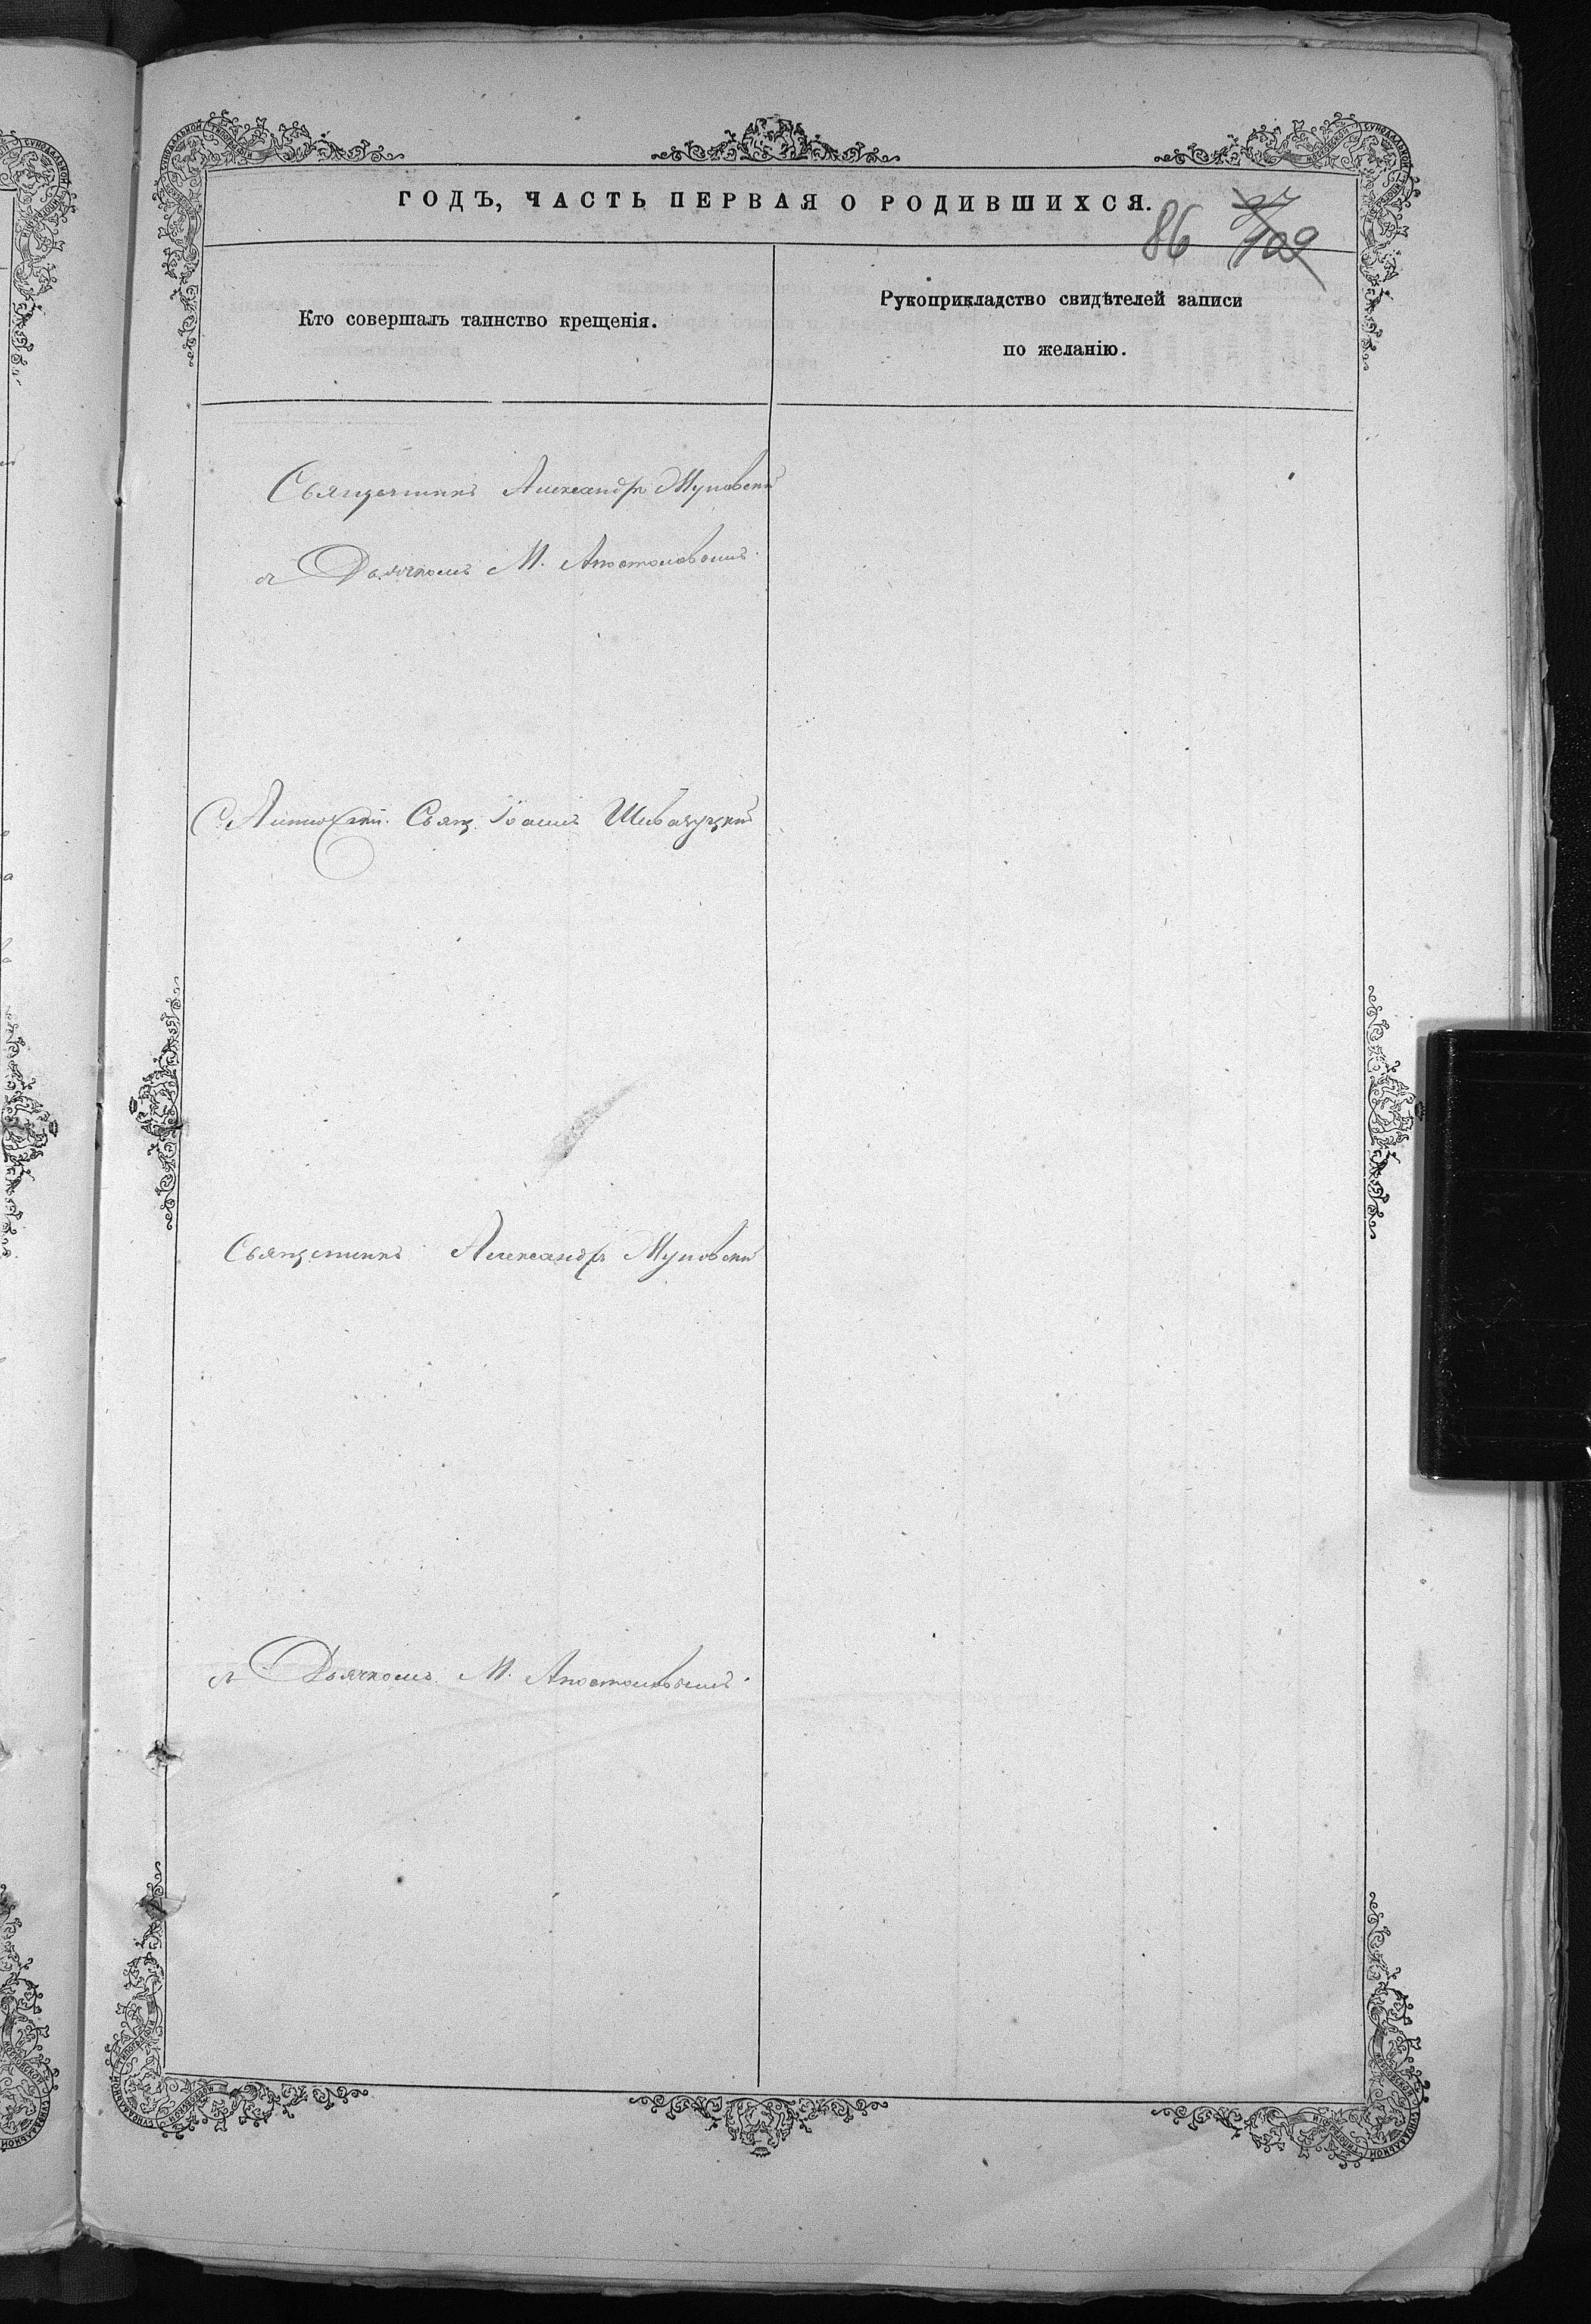 ГОДЪ, ЧАСТЬ ПЕРВАЯ О РОДИВШИХСЯ.
86 109
Кто совершалъ таинство крещенія.
Рукоприкладство свидѣтелей записи
по желанію.
Священникъ Александръ Муновскій
съ Дьячкомъ М. Апостоловымъ.
Свящ. Іоаннъ
Священникъ Александръ Муновскій
съ Дьячкомъ М. Апостоловымъ.